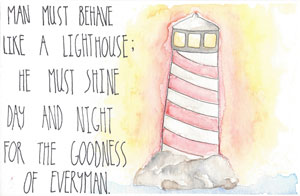 MAN MUST BEHAVE
LIKE A LIGHTHOUSE;
HE MUST SHINE
DAY AND NIGHT
FOR THE GOODNESS
OF EVERYMAN.